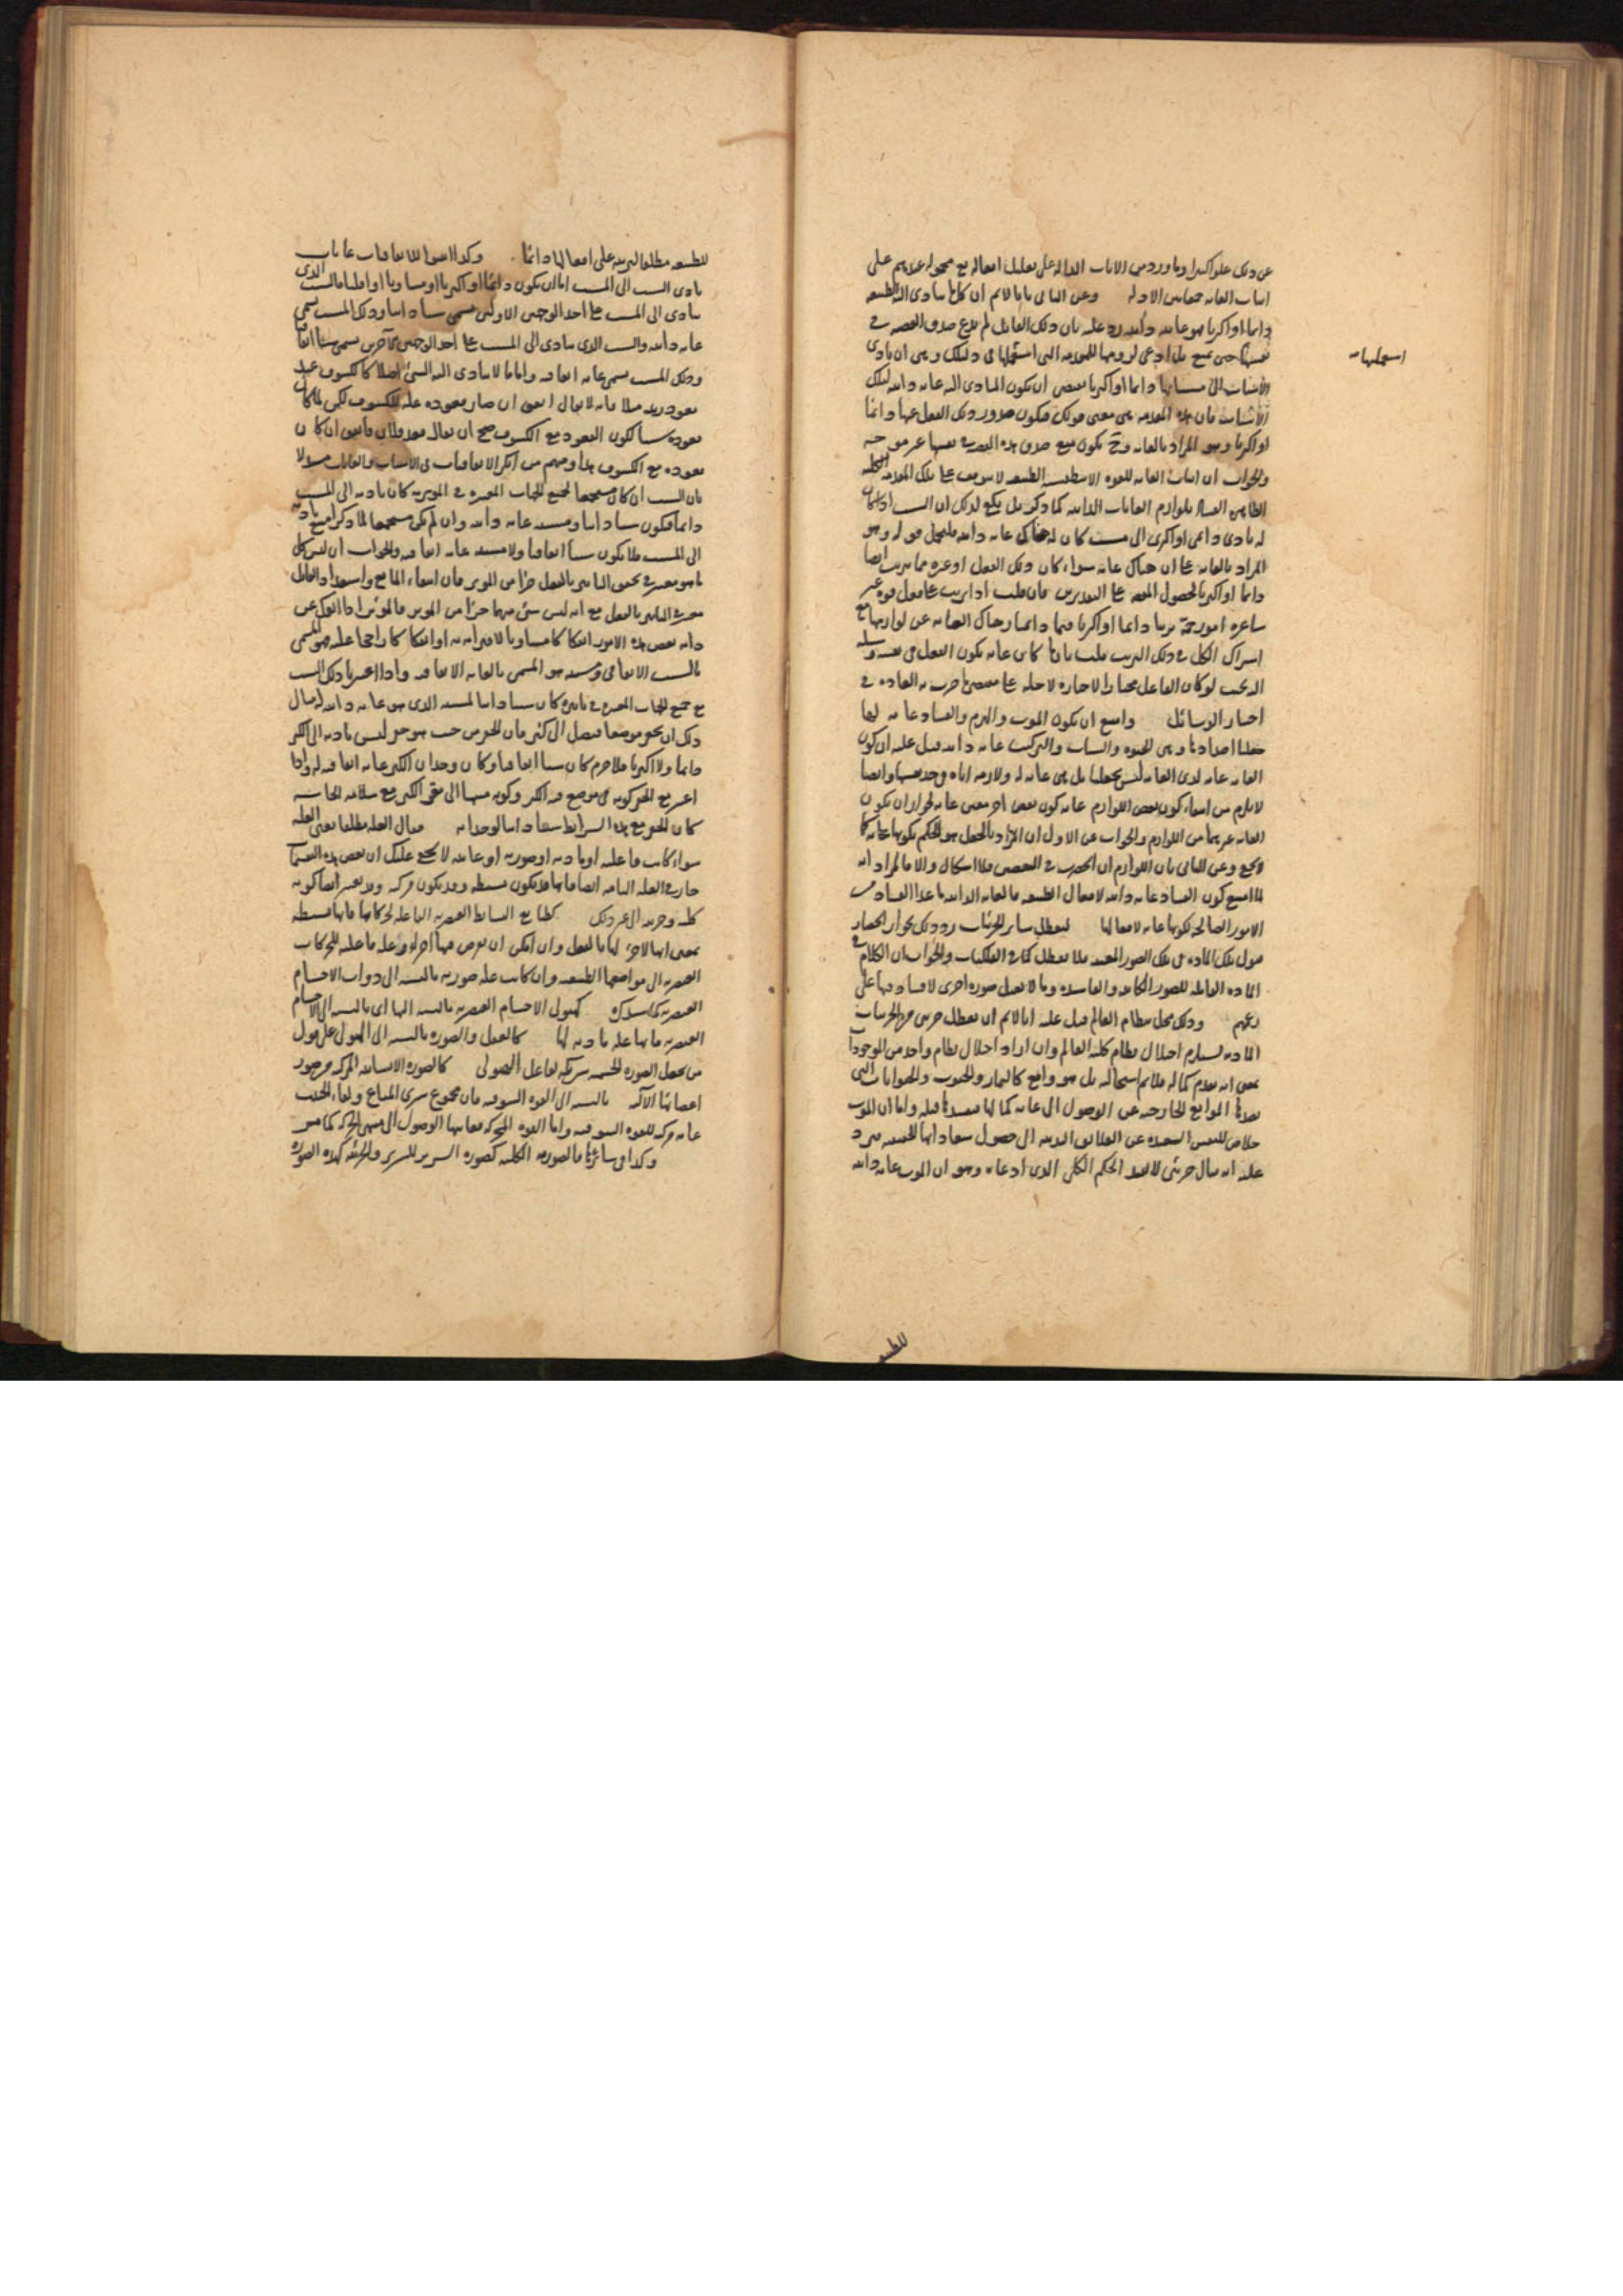 عن ذلك علوا كبيرا وما ورد من الآيات الدالة على تعليل افعاله مع محمولة عندهم على
اثبات الغاية الادلة وعن الثاني بانا لانم ان كل ما يتادى اليه الطبيعة
دائما او اكثريا هو غاية ذاتية رد عليه بان ذلك القائل لم يدع صدق القضية في
نفسها حتى يمنع بل ادعى لزومها للمقدمة التي استعملها في دليلك وهي ان تادى
استعملتها
الاسباب الى مسبباتها دائما او اكثريا يقتضي ان يكون المتادى اليه غاية ذاتية لتلك
الاسباب فان هذه المقدمة هي معنى قولك فيكون صدور ذلك الفعل عنها دائما
او اكثريا وهو المراد بالغاية وح يكون منع صدق هذه القضية في نفسها غير موجه
والجواب ان اثبات الغاية للقوة الطبيعية لا يتوقف على تلك المقدمة الكلية
بلوازم الغايات الذاتية كما ذكر بل يكفي لذلك ان السبب اذا كان
له تادى دائمي او اكثري الى مسبب كان له هناك غاية ذاتية فليحمل قوله وهو
المراد بالغاية على ان هناك غاية سواء كان ذلك الفعل او غيره مما يترتب ايضا
دائما او اكثريا لحصول المقصود على التقديرين فان قلت اذا ترتب على فعل قوة غير
شاعرة امور جمة ترتبا دائما او اكثريا فبما ذا يمتاز هناك الغاية عن لوازمها مع
اشتراك الكل في ذلك الترتب قلت بان ما كان غاية يكون الفعل في نفسه وسيلة
اليه بحيث لو كان الفاعل مختارا لاختاره لاجله على مقتضى ما جرت به العادة في
اختيار الوسائل وامتنع ان يكون الموت والهرم والفساد غاية لها
جعلنا اضدادها وهي الحيوة والشباب والتركيب غاية ذاتية قيل عليه ان كون
الغاية غاية لذي الغاية ليس بجعلنا بل هي غاية له ولازمة اياه وحد نفسها وايضا
لا يلزم من امتناع كون بعض اللوازم غاية كون بعض آخر معين غاية لجواز ان يكون
الغاية غيرهما من اللوازم والجواب عن الاول ان المراد بالجعل هو الحكم بكونها غاية كما
لا يخفى وعن الثاني بان اللوازم ان انحصرت في النقيضين فلا اشكال والا فالمراد انه
لما امتنع كون الفساد غاية ذاتية لافعال الطبيعة فالغاية الذاتية ما عدا الفساد من
الامور الصالحة لكونها غاية لافعالها ليعطل سائر الجزئيات رد ذلك بجواز انحصار
قبول تلك المادة في تلك الصور المعينة فلا يعطل كما في الفلكيات والجواب ان الكلام في
المادة القابلة للصور الكائنة والفاسدة وما لا يقبل صورة اخرى لا فساد فيها على
زعمهم وذلك مخل بنظام العالم قيل عليه انا لانم ان تعطل جزئي من الجزئيات
المادية يستلزم اختلال نظام كلية العالم وان اراد اختلال نظام واحد من الموجودات
بمعنى انه يعدم كماله فلانم استحالته بل هو واقع كالثمار والحبوب والحيوانات التي
الموانع الخارجية عن الوصول الى غاية كمالها قبله واما ان الموت
خلاص للنفس السعيدة عن العلائق البدنية الى حصول سعاداتها الحقيقية فيرد
عليه انه مثال جزئي لا يفيد الحكم الكلي الذي ادعاه وهو ان الموت غاية ذاتية
للطبيعة
للطبيعة مطلقا لترتبه على افعالها دائما وكذا اثبتوا للاتفاقات غايات
تادى السبب الى المسبب اما ان يكون دائما او اكثريا او مساويا او اقليا فالسبب الذي
يتادى الى المسبب على احد الوجهين الاولين يسمى سببا ذاتيا وذلك المسبب يسمى
غاية ذاتية والسبب الذي يتادى الى المسبب على احد الوجهين الآخرين يسمى سببا اتفاقيا
وذلك المسبب يسمى غاية اتفاقية واما ما لا يتادى اليه الشيء اصلا كالكسوف عند
قعود زيد مثلا فانه لا يقال اتفق ان صار قعوده علة للكسوف لكن لما كان
قعوده سببا لكون القعود مع الكسوف صح ان يقال قعد فلان فاتفق ان كان
قعوده مع الكسوف هذا ومنهم من انكر الاتفاقات في الاسباب والغايات مستدلا
بان السبب ان كان مستجمعا لجميع الجهات المعتبرة في المؤثرية كان تاديه الى المسبب
دائما فيكون سببا ذاتيا ومسببه غاية ذاتية وان لم يكن مستجمعا لما ذكر امتنع تاديه
الى المسبب فلا يكون سببا اتفاقيا ولا مسببه غاية اتفاقية والجواب ان ليس كل
ما هو معتبر في تحقق التاثير بالفعل جزأ من المؤثر فان انتفاء المانع واستعداد القابل
معتبر في التاثير بالفعل مع انه ليس شيء منهما جزأ من المؤثر فالمؤثر اذا انفك عن
ذاته بعض هذه الامور انفكاكا مساويا لاقترانه به او انفكاكا راجحا عليه هو المسمى
بالسبب الاتفاقي ومسببه هو المسمى بالغاية الاتفاقية واذا اعتبرنا ذلك السبب
مع جميع الجهات المعتبرة في تاثيره كان سببا ذاتيا لمسببه الذي هو غاية ذاتية له مثال
ذلك ان يحفر موضعا فيصل الى كنز فان الحفر من حيث هو حفر ليس تاديه الى الكنز
دائما ولا اكثريا فلا جرم كان سببا اتفاقيا وكان وجدان الكنز غاية اتفاقية له واذا
اعتبر مع الحفر كونه في موضع فيه الكنز وكونه منتهيا الى عمق الكنز مع سلامة الحاسة
كان الحفر مع هذه الشرائط سببا ذاتيا لوجدانه فقال العلة مطلقا يعني العلة
سواء كانت فاعلية او مادية او صورية او غائية لا يخفى عليك ان بعض هذه التقسيمات
جار في العلة التامة ايضا فانها قد يكون بسيطة وقد يكون مركبة وقد يعتبر ايضا كونها
كلية وجزئية الى غير ذلك كطبايع البسائط العنصرية الفاعلة لحركاتها فانها بسيطة
بمعنى انها لا جزء لها بالفعل وان امكن ان يفرض فيها اجزاء وعلة فاعلية للحركات
العنصرية الى مواضعها الطبيعية وان كانت علة صورية بالنسبة الى ذوات الاجسام
العنصرية كما سيذكره كهيولى الاجسام العنصرية بالنسبة اليها اي بالنسبة الى الاجسام
العنصرية فانها علة مادية لها كالعقل والصورة بالنسبة الى الهيولى على قول
من يجعل الصورة الجسمية شريكة لفاعل الهيولى كالصورة الانسانية المركبة من صور
اعضائها الآلية بالنسبة الى القوة الشوقية فان مجموع شرى المتاع ولقاء الحبيب
غاية مركبة للقوة الشوقية واما القوة المحركة فغايتها الوصول الى منتهى الحركة كما مر
وكذا في سائرها فالصورية الكلية كصورة السرير للسرير والجزئية كهذه الصورة